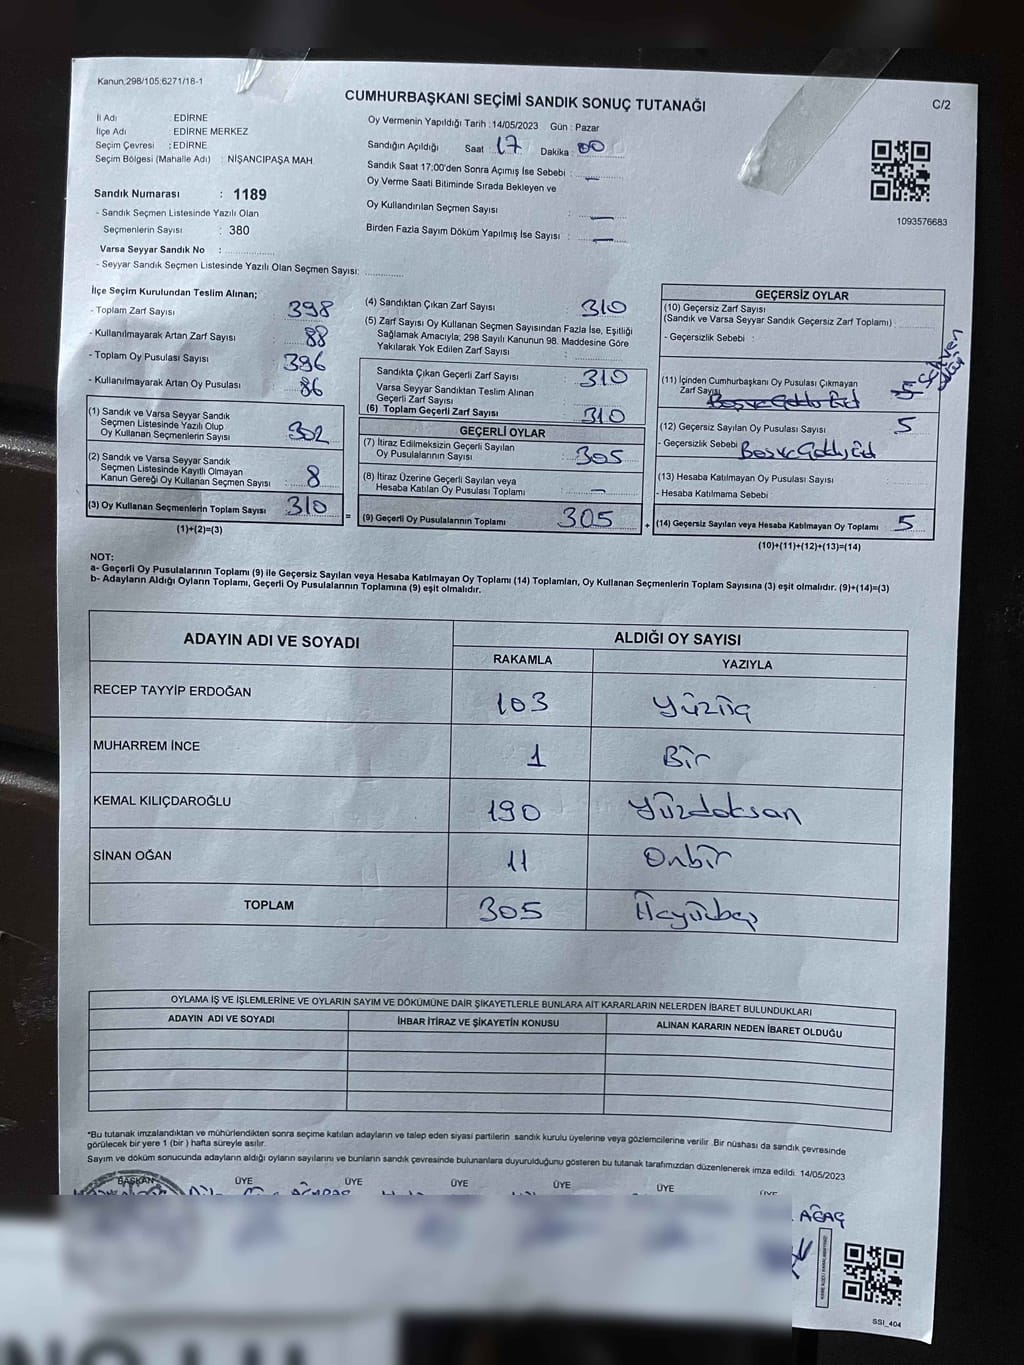 Kanun,298/105,6271/18-1
C/2
CUMHURBAŞKANI SEÇİMİ SANDIK SONUÇ TUTANAĞI
İl Adı : EDİRNE
İlçe Adı : EDİRNE MERKEZ
Seçim Çevresi : EDİRNE
Seçim Bölgesi (Mahalle Adı) : NİŞANCIPAŞA MAH.
Sandık Numarası : 1189
- Sandık Seçmen Listesinde Yazılı Olan
Seçmenlerin Sayısı : 380
Varsa Seyyar Sandık No :
- Seyyar Sandık Seçmen Listesinde Yazılı Olan Seçmen Sayısı:
Oy Vermenin Yapıldığı Tarih : 14/05/2023 Gün : Pazar
Sandığın Açıldığı Saat 17 Dakika : 00
Sandık Saat 17:00'den Sonra Açımış İse Sebebi : -
Oy Verme Saati Bitiminde Sırada Bekleyen ve
Oy Kullandırılan Seçmen Sayısı : -
Birden Fazla Sayım Döküm Yapılmış İse Sayısı : -
1093576683
İlçe Seçim Kurulundan Teslim Alınan;
- Toplam Zarf Sayısı : 398
- Kullanılmayarak Artan Zarf Sayısı : 88
- Toplam Oy Pusulası Sayısı : 396
- Kullanılmayarak Artan Oy Pusulası : 86
(1) Sandık ve Varsa Seyyar Sandık
Seçmen Listesinde Yazılı Olup
Oy Kullanan Seçmenlerin Sayısı : 302
(2) Sandık ve Varsa Seyyar Sandık
Seçmen Listesinde Kayıtlı Olmayan
Kanun Gereği Oy Kullanan Seçmen Sayısı : 8
(3) Oy Kullanan Seçmenlerin Toplam Sayısı : 310
(1)+(2)=(3)
(4) Sandıktan Çıkan Zarf Sayısı : 310
(5) Zarf Sayısı Oy Kullanan Seçmen Sayısından Fazla İse, Eşitliği
Sağlamak Amacıyla; 298 Sayılı Kanunun 98. Maddesine Göre
Yakılarak Yok Edilen Zarf Sayısı :
Sandıkta Çıkan Geçerli Zarf Sayısı : 310
Varsa Seyyar Sandıktan Teslim Alınan
Geçerli Zarf Sayısı :
(6) Toplam Geçerli Zarf Sayısı : 310
GEÇERLİ OYLAR
(7) İtiraz Edilmeksizin Geçerli Sayılan
Oy Pusulalarının Sayısı : 305
(8) İtiraz Üzerine Geçerli Sayılan veya
Hesaba Katılan Oy Pusulası Toplamı : -
= (9) Geçerli Oy Pusulalarının Toplamı : 305 +
GEÇERSİZ OYLAR
(10) Geçersiz Zarf Sayısı
(Sandık ve Varsa Seyyar Sandık Geçersiz Zarf Toplamı) :
- Geçersizlik Sebebi :
(11) İçinden Cumhurbaşkanı Oy Pusulası Çıkmayan
Zarf Sayısı : 5
(12) Geçersiz Sayılan Oy Pusulası Sayısı : 5
- Geçersizlik Sebebi
(13) Hesaba Katılmayan Oy Pusulası Sayısı
- Hesaba Katılmama Sebebi
(14) Geçersiz Sayılan veya Hesaba Katılmayan Oy Toplamı : 5
(10)+(11)+(12)+(13)=(14)
NOT:
a- Geçerli Oy Pusulalarının Toplamı (9) ile Geçersiz Sayılan veya Hesaba Katılmayan Oy Toplamı (14) Toplamları, Oy Kullanan Seçmenlerin Toplam Sayısına (3) eşit olmalıdır. (9)+(14)=(3)
b- Adayların Aldığı Oyların Toplamı, Geçerli Oy Pusulalarının Toplamına (9) eşit olmalıdır.
ADAYIN ADI VE SOYADI ALDIĞI OY SAYISI
RAKAMLA YAZIYLA
RECEP TAYYİP ERDOĞAN 103 Yüzüç
MUHARREM İNCE 1 Bir
KEMAL KILIÇDAROĞLU 190 Yüzdoksan
SİNAN OĞAN 11 Onbir
TOPLAM 305 Üçyüzbeş
OYLAMA İŞ VE İŞLEMLERİNE VE OYLARIN SAYIM VE DÖKÜMÜNE DAİR ŞİKAYETLERLE BUNLARA AİT KARARLARIN NELERDEN İBARET BULUNDUKLARI
ADAYIN ADI VE SOYADI İHBAR İTİRAZ VE ŞİKAYETİN KONUSU ALINAN KARARIN NEDEN İBARET OLDUĞU
*Bu tutanak imzalandıktan ve mühürlendikten sonra seçime katılan adayların ve talep eden siyasi partilerin sandık kurulu üyelerine veya gözlemcilerine verilir. Bir nüshası da sandık çevresinde
görülecek bir yere 1 (bir ) hafta süreyle asılır.
Sayım ve döküm sonucunda adayların aldığı oyların sayılarını ve bunların sandık çevresinde bulunanlara duyurulduğunu gösteren bu tutanak tarafımızdan düzenlenerek imza edildi. 14/05/2023
BAŞKAN ÜYE ÜYE ÜYE ÜYE ÜYE ÜYE
AĞAÇ
SSI_404